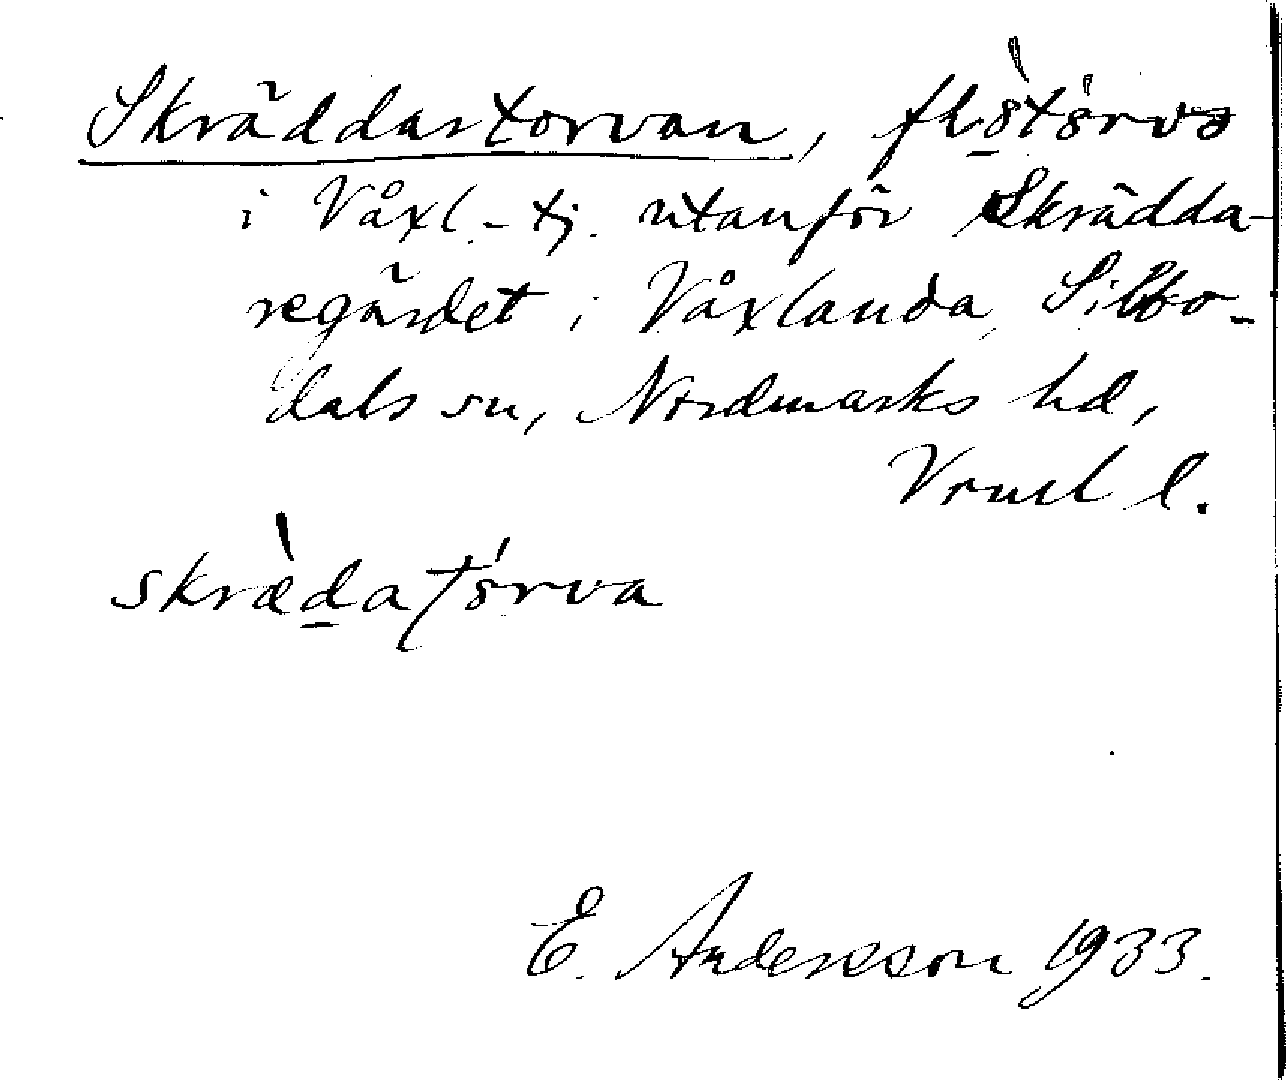 Skräddartorvan, flòtó̤rvə
i Våxl.-tj. utanför Skrädda-
regärdet i Våxlanda, Silbo-
dals sn, Nordmarks hd,
Vrml l.
skrædatórva
E. Andersson 1933.